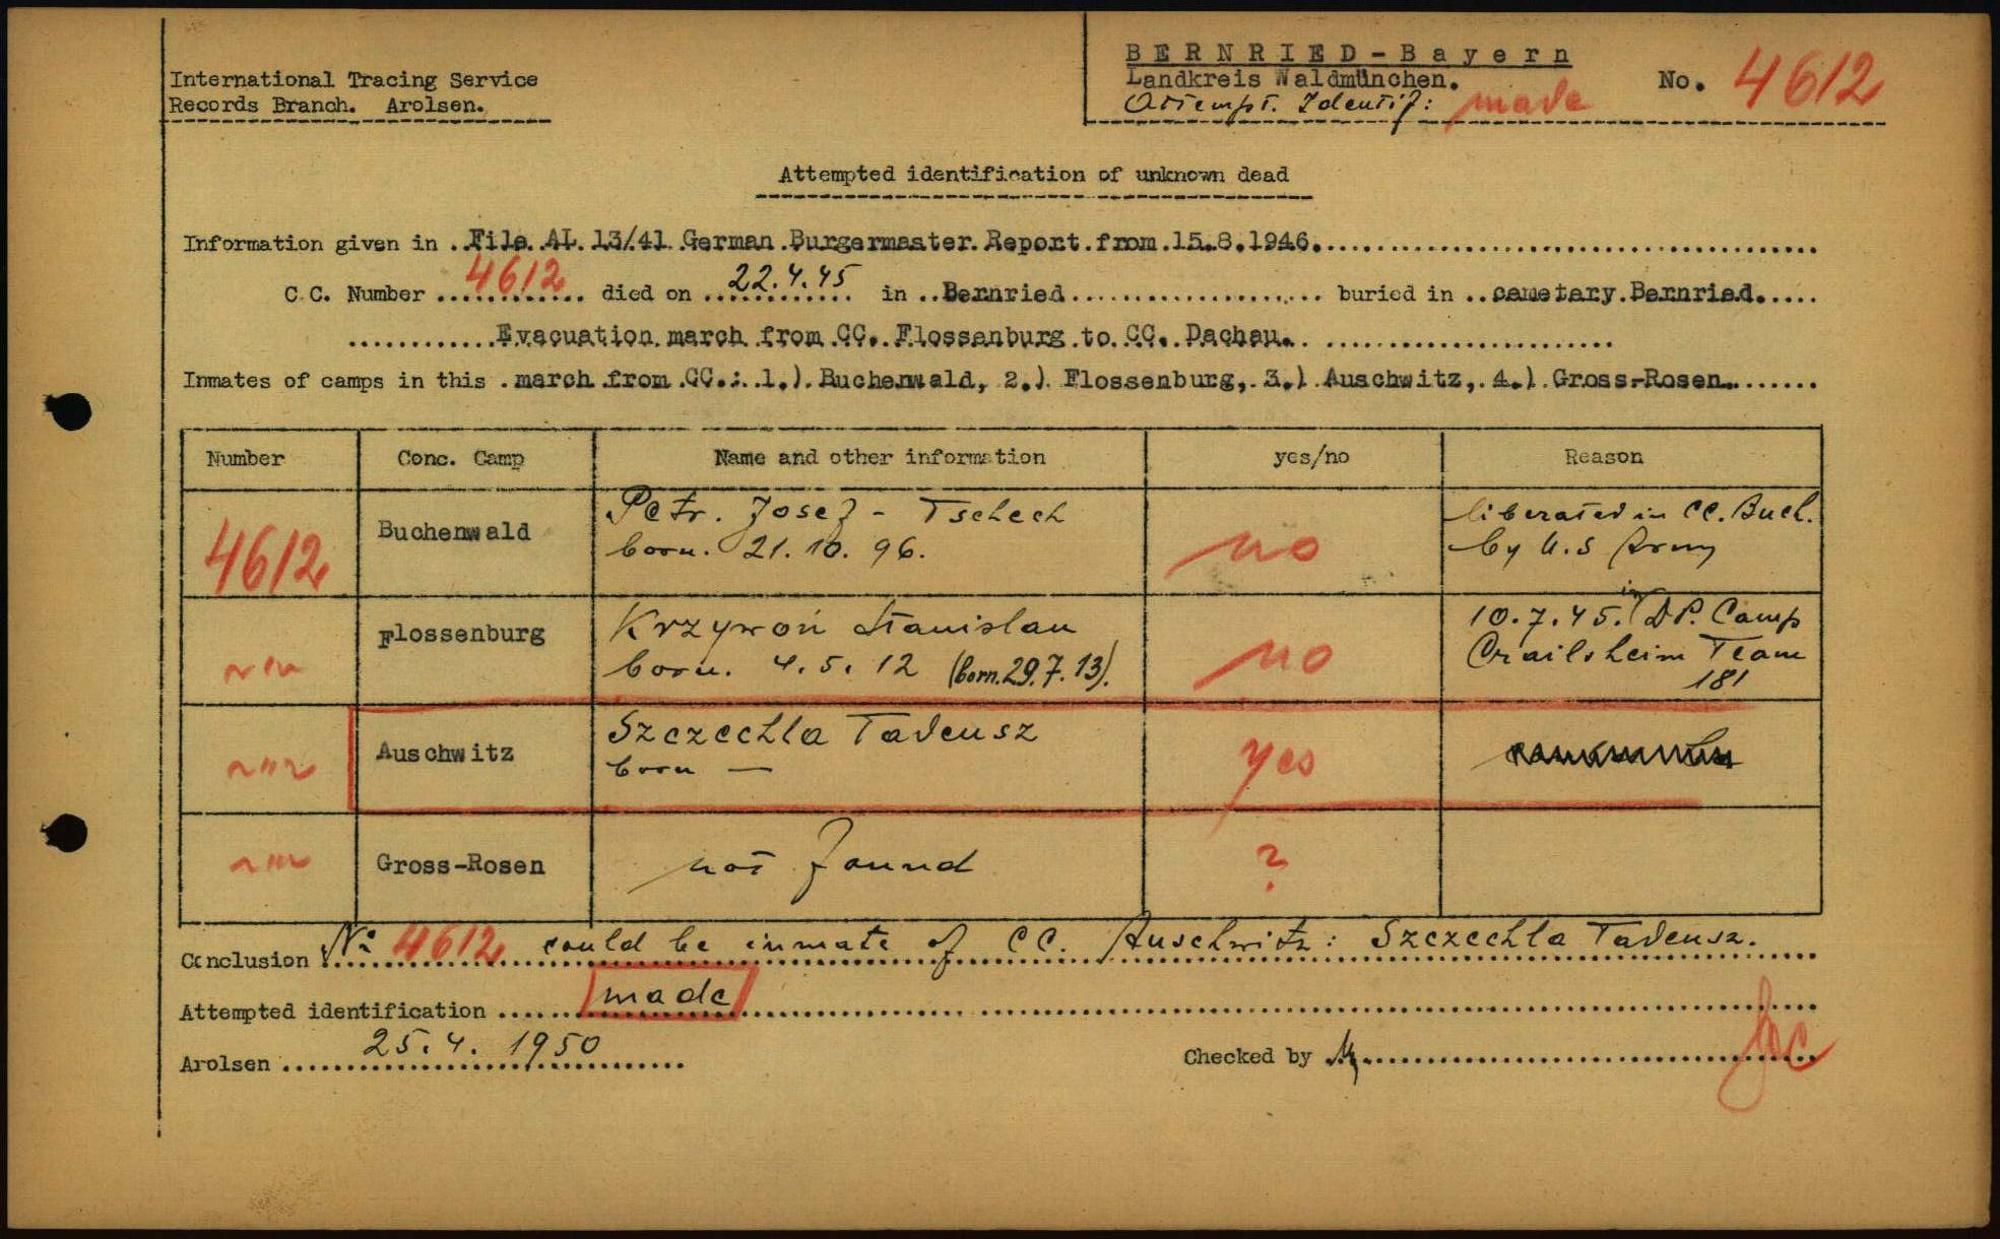 International Tracing Service
Records Branch. Arolsen.
BERNRIED-Bayern
Landkreis Waldmünchen.
Attempt. Identif: made
No. 4612
Attempted identification of unknown dead
Information given in ..File AL 13/41 German Burgermaster Report from 15.8.1946.
C.C. Number 4612 died on 22.4.45 in ..Bernried. buried in ..cemetary Bernried.
Evacuation march from CC. Flossenburg to CC. Dachau.
Inmates of camps in this .march from CC.: 1.) Buchenwald, 2.) Flossenburg, 3.) Auschwitz, 4.) Gross-Rosen.
Number Conc. Camp Name and other information yes/no Reason
4612 Buchenwald Petr. Josef - Tschech no liberated in CC. Buch.
born. 21.10.96. by U.S Army
~"~ Flossenburg Krzywoń Stanislau no 10.7.45. in DP. Camp
born. 4.5.12 (born. 29.7.13). Crailsheim Team
181
~"~ Auschwitz Szczechla Tadeusz yes
born —
~"~ Gross-Rosen not found ?
Conclusion No 4612 could be inmate of CC. Auschwitz: Szczechla Tadeusz.
Attempted identification made
Arolsen 25.4. 1950 Checked by